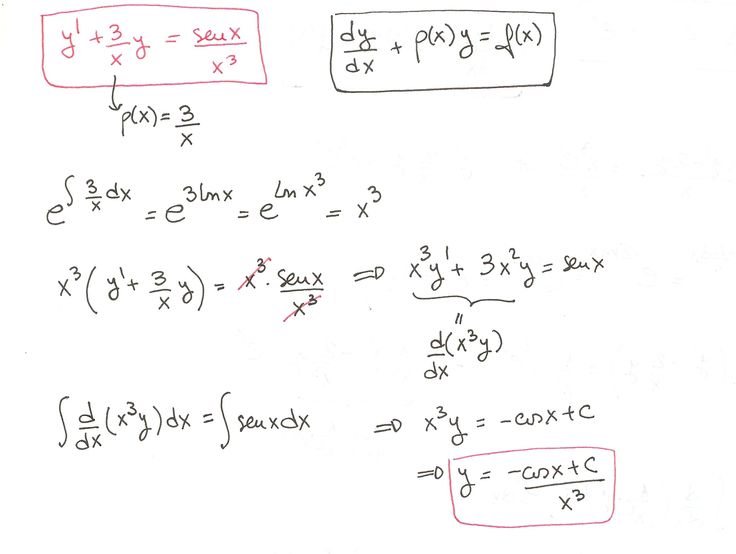 y' + 3/x y = senx/x³
dy/dx + p(x) y = f(x)
p(x) = 3/x
e^∫ 3/x dx = e^3lnx = e^ln x³ = x³
x³ ( y' + 3/x y ) = x³ · senx/x³ ⇒ x³y' + 3x²y = senx
"
d/dx (x³y)
∫ d/dx (x³y) dx = ∫ senx dx ⇒ x³y = -cosx + C
⇒ y = -cosx + C/x³